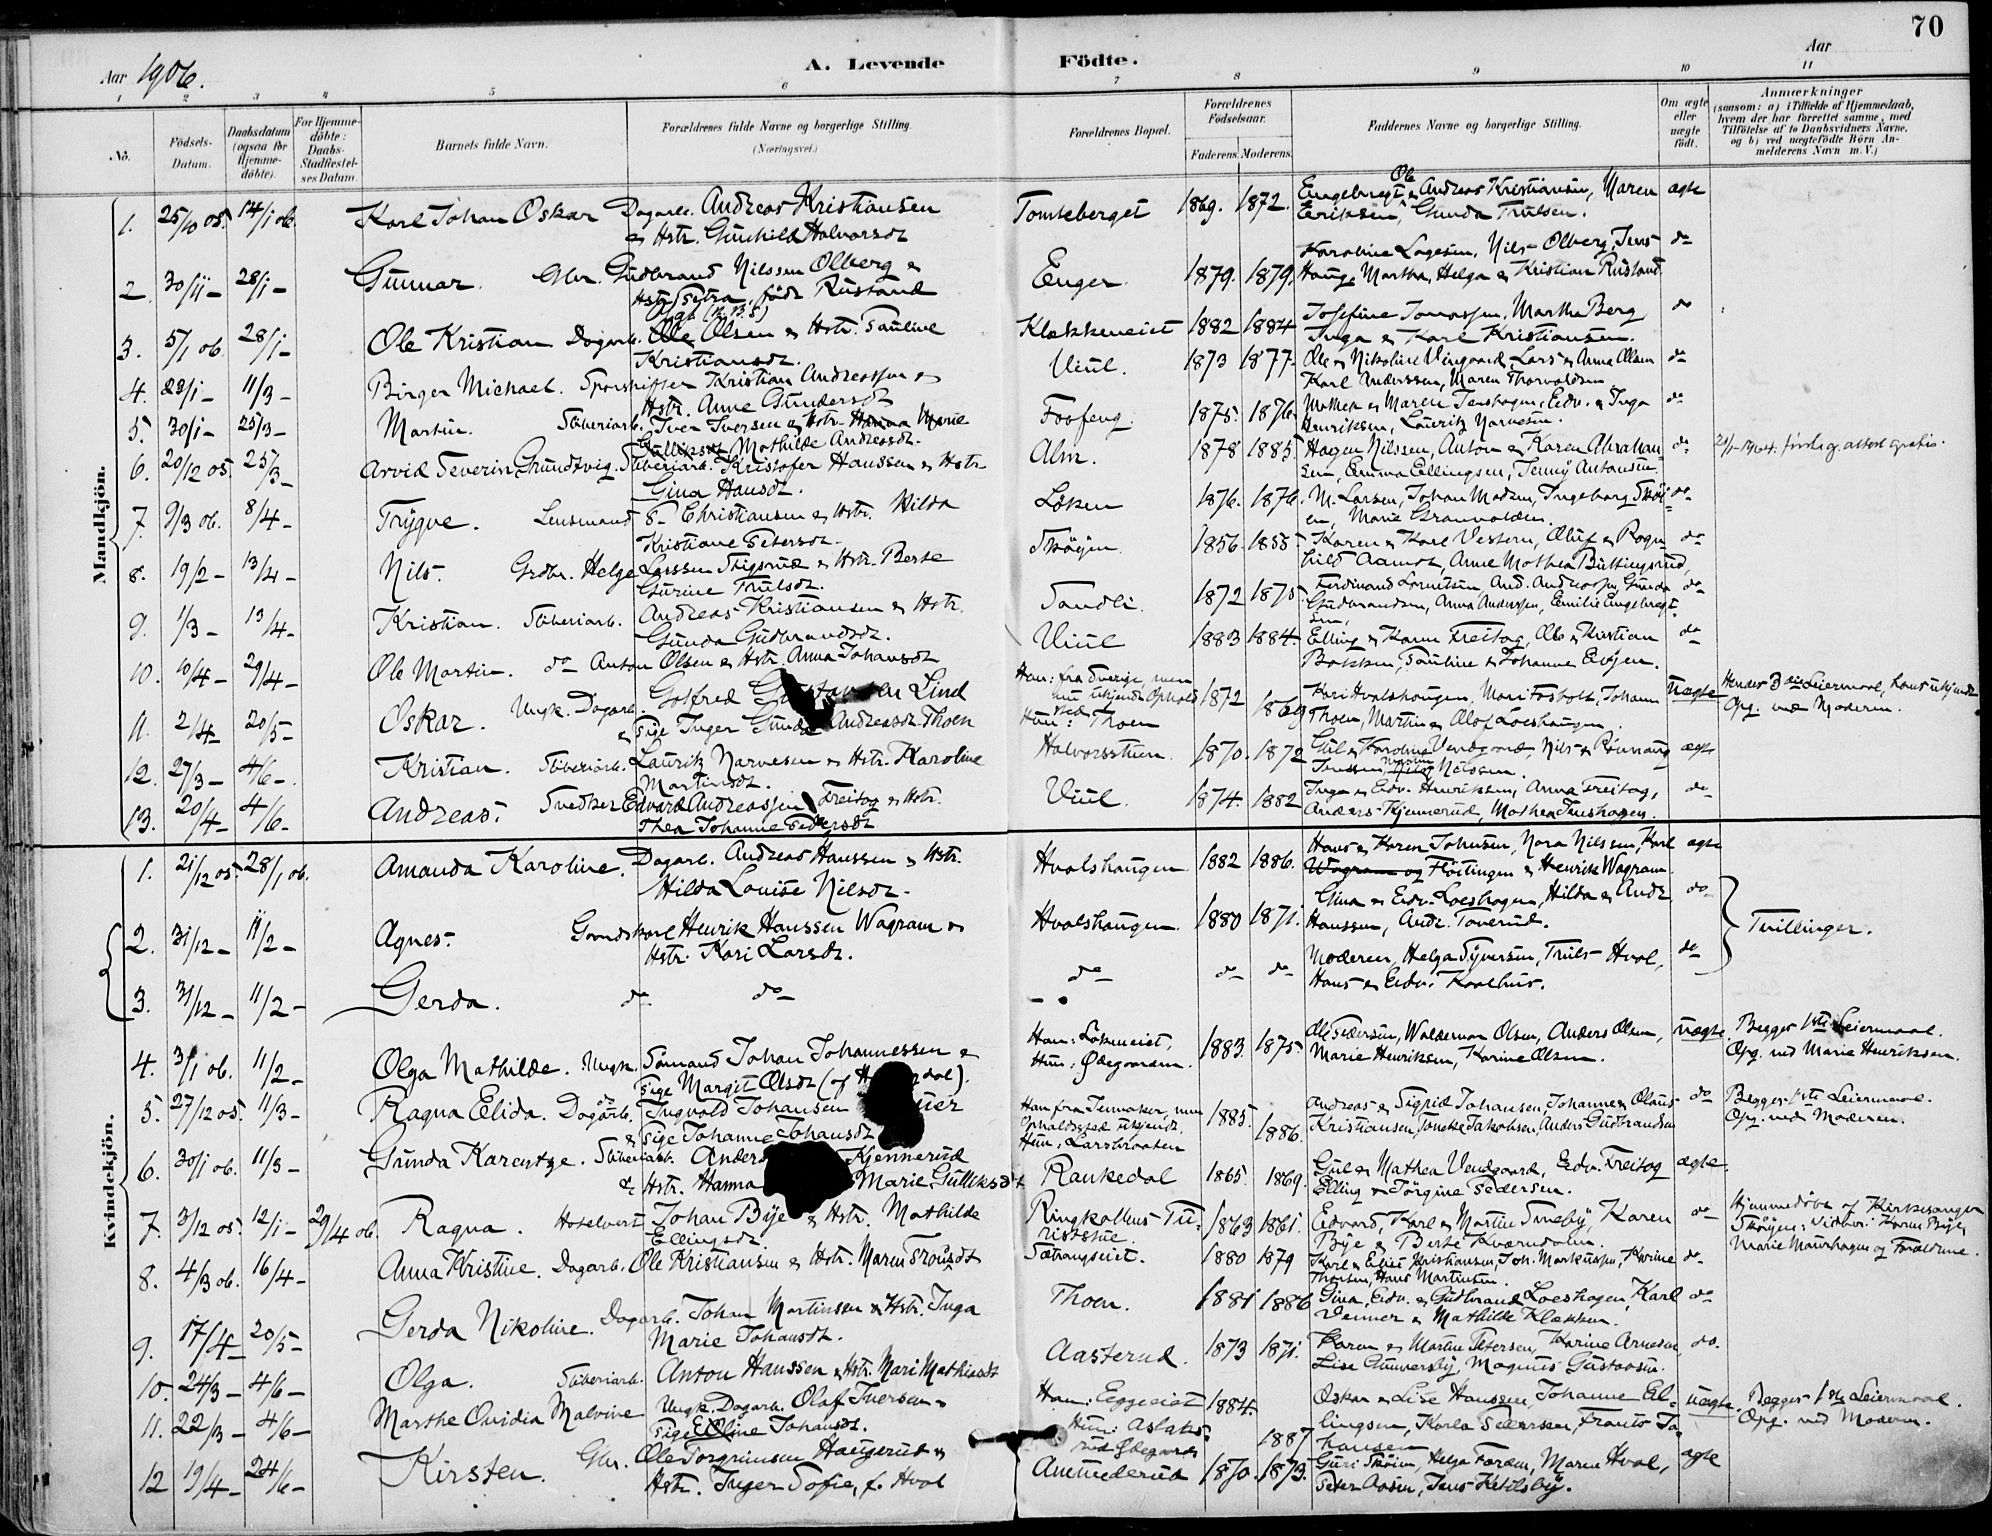 70
Aar 1906.
A. Levende Födte.
Aar
1 2 3 4 5 6 7 8 9 10 11
No.
Födsels-Datum.
Daabsdatum (ogsaa for Hjemme-döbte).
For Hjemme-döbte: Daabs-Stadfæstel-ses Datum.
Barnets fulde Navn.
Forældrenes fulde Navne og borgerlige Stilling.
(Næringsvei.)
Forældrenes Bopæl.
Forældrenes Födselsaar.
Faderens. Moderens.
Faddernes Navne og borgerlige Stilling.
Om ægte eller uægte födt.
Anmærkninger
(saasom: a) i Tilfælde af Hjemmedaab, hvem der har forrettet samme, med Tilföielse af to Daabsvidners Navne, og b) ved uægtefödte Börn Anmelderens Navn m. V.)
Mandkjön.
1. 25/10 05. 14/1 06. Karl Johan Oskar Dagarb. Andreas Kristiansen
& Hstr. Gunhild Halvorsdt Tomteberget 1869. 1872. Engebregt & Andreas Kristiansen, Maren
Eriksen, Gunda Trulsen. ægte
2. 30/11 – 28/1 – Gunnar. Gbr. Gudbrand Nilssen Olberg &
Hstr. Petra, född Rustand Enger 1879. 1879. Karoline Lagesen, Nils Olberg, Jens
Haug, Martha, Helga & Kristian Rustand do
3. 5/1 06. 28/1 – Ole Kristian Dagarb. Ole Olsen & Hstr. Pauline
Kristiansdt. Klækkeneiet 1882 1884 Josefine Tomassen, Martha Berg
Inga & Karl Kristiansen. do
4. 23/1 – 11/3 – Birger Michael. Sporskifter Kristian Andreassen &
Hstr. Anne Gundersdt Viul. 1873 1877. Ole & Nikoline Viugaard, Lars & Anna Olsen
Karl Anderssen, Maren Thorvaldsen do
5. 30/1 – 25/3 – Martin. Sliberiarb. Iver Iversen & Hstr. Hanna Marie
Gulliksdt Mathilde Andreasdt. Fosfeng. 1875. 1876. Mathea & Maren Tenshagen, Edv. & Inga
Henriksen, Lauritz Narvesen. do
6. 20/12 05. 25/3 – Arvid Severin Grundtvig. Sliberiarb. Kristofer Hanssen & Hstr
Gina Hansdt. Alm. 1878 1885 Hagen Nilssen, Anton & Karen Abraham
sen, Emma Ellingsen, Jenny Antonsen. do
7. 9/3 06. 8/4 – Trygve. Lensmand S. Christiansen & Hstr. Hilda
Kristiane Petersdt. Løken 1876. 1876. M. Larsen, Johan Madsen, Ingeborg Skøi
en, Marie Granvolden. do
8. 19/2 – 13/4 – Nils. Grdbr. Helge Larssen Stigsrud & Hstr. Berte
Gurine Trulsdt. Skøyen. 1856. 1855. Karen & Karl Vestern, Oluf & Ragn
hild Aamot, Anne Mathea Buttingsrud, do
9. 1/3 – 13/4 – Kristian. Sliberiarb. Andreas Kristiansen & Hstr.
Gunda Gudbrandsdt. Sandli 1872 1875 Ferdinand Lornitsen, And. Andreassen, Gunda
Gudbrandsen, Anna Anderssen, Emilie Engebregt
sen, do
10. 10/4 – 29/4 – Ole Martin do Anton Olsen & Hstr. Anna Johansdt Viul 1883 1884 Elling & Karen Freitag, Ole & Kristian
Bakken, Pauline & Johanne Evjen. do
11. 2/4 – 20/5 – Oskar. Ungk. Dagarb. Golfred Lind
& Pige Inger Gunda Andreasdt. Thoen Han: fra Sverige, men
nu ukjendt Opholds
sted
Hun: Thoen 1872 1869 Kari Hvalshaugen, Mari Fosholt, Johann
Thoen, Martin & Olof Loeshaugen. uægte Hendes 3die Leiermaal, hans ukjendt
Opg. ved Moderen.
12. 27/3 – 4/6 – Kristian. Sliberiarb. Lauritz Narvesen & Hstr. Karoline
Martinsdt. Halvorsstuen 1870. 1872 Gul & Karoline Vendgaard, Nils & Rønnaug
Jenssen, Nilssen. ægte
13. 20/4 – 4/6 – Andreas. Svedker Edvard Andreassen Freitag & Hstr.
Thea Johanne Pedersdt Viul. 1874. 1882 Inger & Edv. Henriksen, Anna Freitag,
Anders Kjennerud, Mathea Tenshagen. do
Kvindekjön.
1. 21/12 05 28/1 06. Amanda Karoline. Dagarb. Andreas Hanssen & Hstr.
Hilda Louise Nilsdt. Hvalshaugen 1882 1886. Hans & Karen Johnsen, Nora Nilssen, Karl
Wagram og Fløitingen & Henrik Wagram. ægte
2. 31/12 – 11/2 – Agnes. Gaardskarl Henrik Hanssen Wagram &
Hstr. Kari Larsdt. Hvalshaugen. 1880 1871. Gina & Edv. Loeshagen, Hilda & Andr
Hanssen, Andr. Taverud. do
Tvillinger.
3. 31/12 – 11/2 – Gerda. do do do do do Moderen, Helga Syversen, Truls Hval,
Hans & Edv. Kaalhus. do
4. 3/1 06. 11/2 – Olga Mathilde. Ungk. Sømand Johan Johannessen &
Pige Margit Olsdt (of H dal). Han: Løkeneiet,
Hun: Ødegaarden. 1883. 1875. Ole Pedersen, Waldemar Olsen, Anders Olsen,
Marie Henriksen, Karine Olsen. uægte Begges 1ste Leiermaal.
Opg. ved Marie Henriksen.
5. 27/12 05. 11/3 – Ragna Elida. Dagarb. Ingvald Johansen
& Pige Johanne Johansdt Han fra Jevnaker, nu
Opholdssted ukjendt.
Hun: Larsbraaten 1885. 1886. Andreas & Sigrid Johansen, Johanne & Olaus
Kristiansen, Jonette Jakobsen, Anders Gudbrandsen do Begges 1ste Leiermaal.
Opg. ved Moderen.
6. 30/1 06. 11/3 – Gunda Karentze. Sliberiarb. Anders Kjennerud
& Hstr. Hanna Marie Gulliksdt Rankedal 1865. 1869. Gul & Mathea Vendgaard, Edv. Freitag
Elling & Jørgine Pedersen. ægte
7. 3/12 05. 12/1 – 29/4 06. Ragna. Hotelvert Johan Bye & Hstr. Mathilde
Ellingsdt. Ringkollens Tu-
riststue. 1863 1861. Edvard, Karl & Martin Smeby, Karen
Bye & Berte Kværndalen. do Hjemmedøbt af Kirkesanger
Skøyen: Vidner: Karen Bye,
Marie Maurhagen og Forældrene.
8. 4/3 06. 16/4 – Anna Kristine. Dagarb. Ole Kristiansen & Hstr. Maren Trondsdt Sætrangseiet. 1880 1879 Karl & Elise Kristiansen, Joh. Markussen, Karine
Thorsen, Hans Martinsen. do
9. 17/4 – 20/5 – Gerda Nikoline. Dagarb. Johan Martinsen & Hstr. Inga
Marie Johansdt. Thoen. 1881 1886 Gina, Edv. & Gudbrand Loeshagen, Karl
Venner & Mathilde Klækken. do
10. 24/3 – 4/6 – Olga. Sliberiarb. Anton Hanssen & Hstr. Mari Mathiasdt Aasterud. 1873 1871. Karen & Martin Petersen, Karine Arnesen
Lise Gunnersby, Magnus Gustavsen. do.
11. 22/3 – 4/6 – Marthe Ovidia Malvine Ungk. Dagarb. Olaf Iversen &
Pige Eline Johansdt. Han: Eggeeiet
Hun: Aslaks-
rud Ødegaard 1884. 1887 Oskar & Lise Hanssen, Johanne El-
lingsen, Karla Pederssen, Frants Jo-
hansen uægte. Begges 1ste Leiermaal.
Opg. ved Moderen.
12 19/4 – 24/6 – Kirsten. Gbr. Ole Torgrimsen Haugerud &
Hstr. Inger Sofie, f. Hval Ammederud 1870. 1873. Guri Skøien, Helga Farden, Maren Hval,
Peter Aasen, Jens Ketilsby. ægte